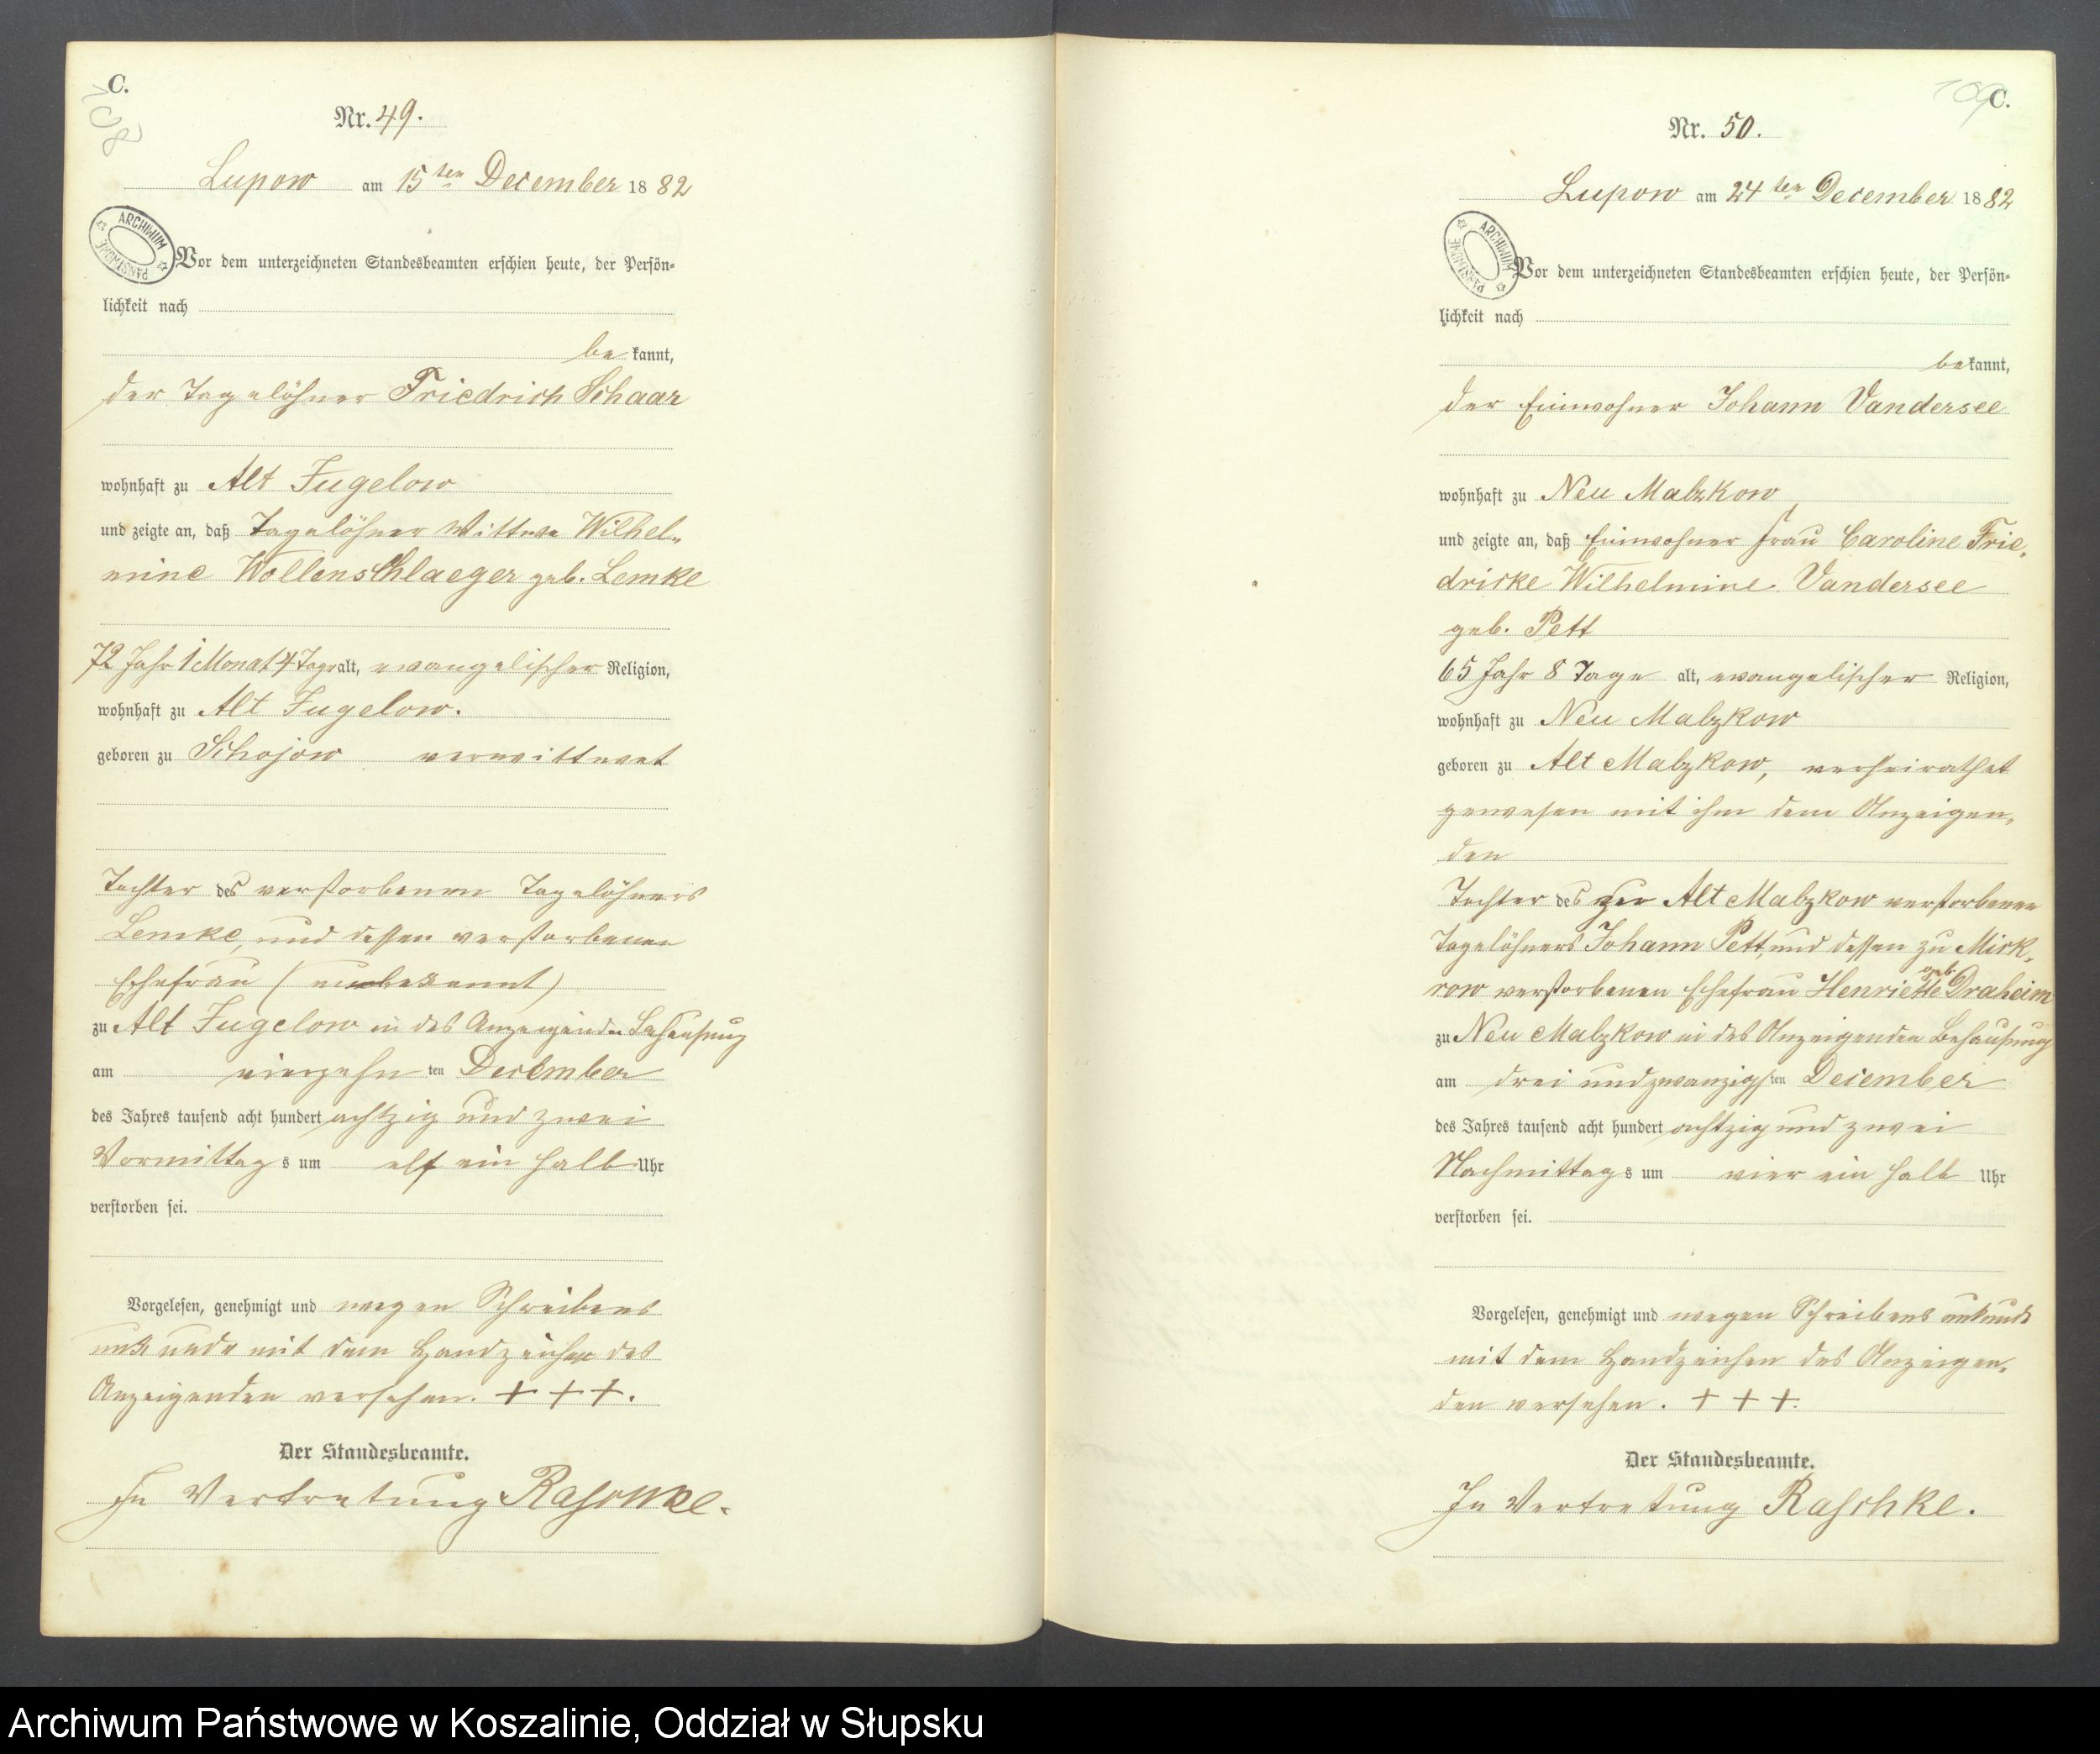 C.
108
Nr. 49.
Lupow am 15ten December 1882
ARCHIWUM PAŃSTWOWE
Vor dem unterzeichneten Standesbeamten erschien heute, der Persön-
lichkeit nach
be kannt,
der Tagelöhner Friedrich Schaar
wohnhaft zu Alt Jugelow
und zeigte an, daß Tagelöhner Wittwe Wilhel-
mine Wollenschlaeger geb. Lemke
72 Jahr 1 Monat 4 Tage alt, evangelischer Religion,
wohnhaft zu Alt Jugelow.
geboren zu Schojow verwittwet
Tochter des verstorbenen Tagelöhners
Lemke, und dessen verstorbenen
Ehefrau (unbekannt)
zu Alt Jugelow in des Anzeigenden Behausung
am vierzehn ten December
des Jahres tausend acht hundert achtzig und zwei
Vormittag s um elf ein halb Uhr
verstorben sei.
Vorgelesen, genehmigt und wegen Schreibens
unkunde mit dem Handzeichen des
Anzeigenden versehen. + + +.
Der Standesbeamte.
In Vertretung Raschke.
109
C.
Nr. 50.
Lupow am 24ten December 1882
ARCHIWUM PAŃSTWOWE
Vor dem unterzeichneten Standesbeamten erschien heute, der Persön-
lichkeit nach
bekannt,
der Einwohner Johann Vandersee
wohnhaft zu Neu Malzkow
und zeigte an, daß Einwohner Frau Caroline Frie-
dricke Wilhelmine Vandersee
geb. Pett
65 Jahr 8 Tage alt, evangelischer Religion,
wohnhaft zu Neu Malzkow
geboren zu Alt Malzkow, verheirathet
gewesen mit ihm dem Anzeigen-
den
Tochter des zu Alt Malzkow verstorbenen
Tagelöhners Johann Pett, und dessen zu Mick-
row verstorbenen Ehefrau Henriette geb. Draheim
zu Neu Malzkow in des Anzeigenden Behausung
am drei und zwanzigsten December
des Jahres tausend acht hundert achtzig und zwei
Nachmittag s um vier ein halb Uhr
verstorben sei.
Vorgelesen, genehmigt und wegen Schreibens unkunde
mit dem Handzeichen des Anzeigen-
den versehen. + + +.
Der Standesbeamte.
In Vertretung Raschke.
Archiwum Państwowe w Koszalinie, Oddział w Słupsku